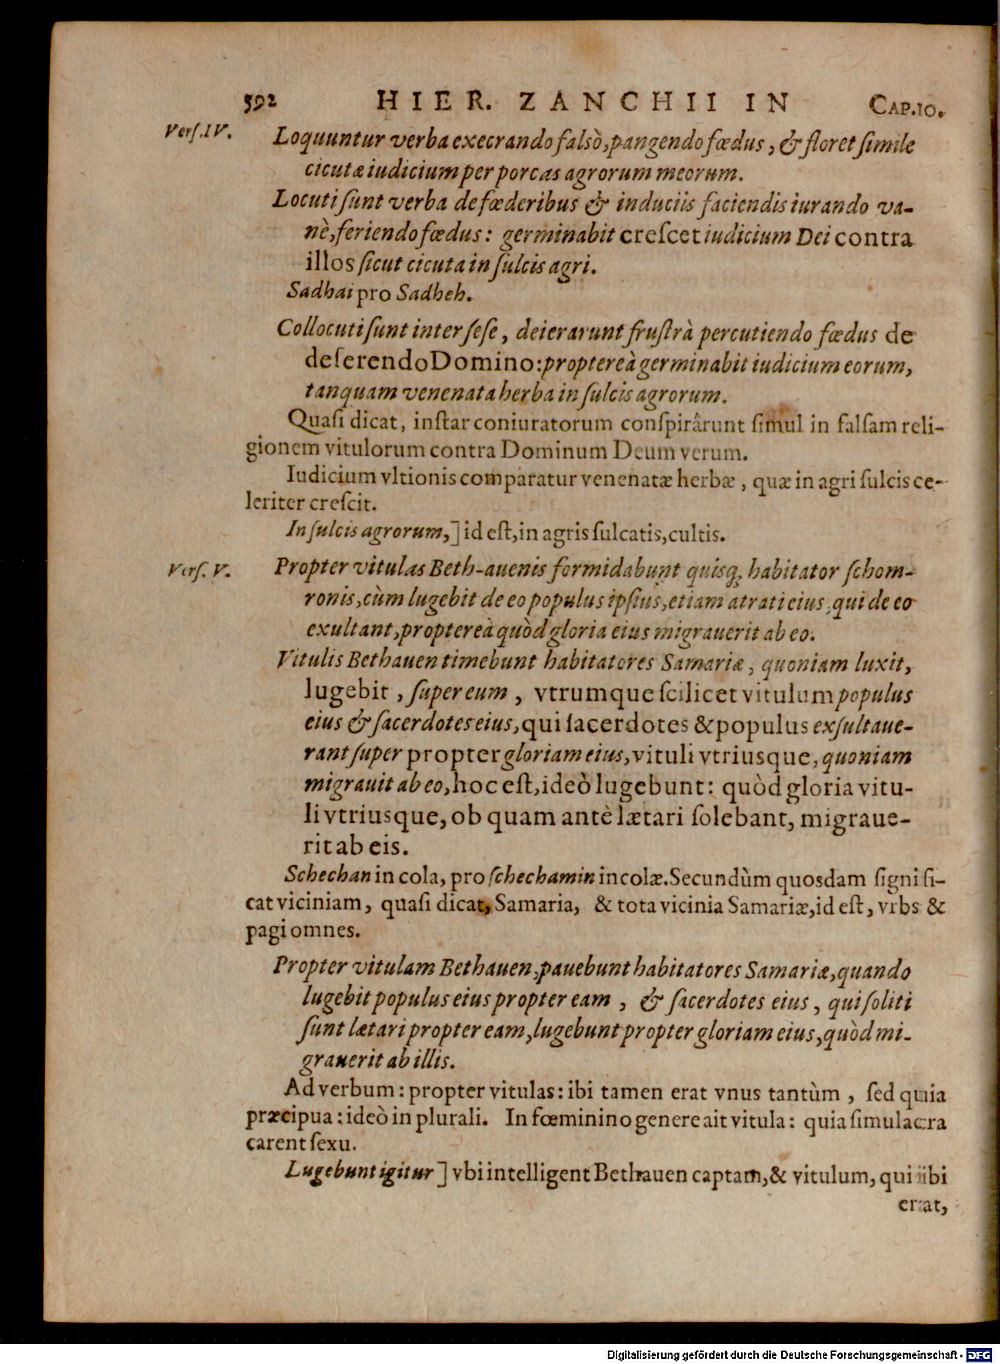 592 HIER. ZANCHII IN CAP.10.
Verſ. IV.
Loquuntur verba execrando falsò, pangendo fœdus, & floret ſimile
cicutæ iudicium per porcas agrorum meorum.
Locuti ſunt verba de fœderibus & induciis faciendis iurando va-
nè, feriendo fœdus: germinabit creſcet iudicium Dei contra
illos ſicut cicuta in ſulcis agri.
Sadhai pro Sadheh.
Collocuti ſunt inter ſeſe, deierarunt fruſtrà percutiendo fœdus de
deſerendo Domino: proptereà germinabit iudicium eorum,
tanquam venenata herba in ſulcis agrorum.
Quaſi dicat, inſtar coniuratorum conſpirârunt ſimul in falſam reli-
gionem vitulorum contra Dominum Deum verum.
Iudicium vltionis comparatur venenatæ herbæ, quæ in agri ſulcis ce-
leriter creſcit.
In ſulcis agrorum,] id eſt, in agris ſulcatis, cultis.
Verſ. V.
Propter vitulas Beth-auenis formidabunt quisq; habitator ſchom-
ronis, cùm lugebit de eo populus ipſius, etiam atrati eius, qui de eo
exultant, proptereà quòd gloria eius migrauerit ab eo.
Vitulis Bethauen timebunt habitatores Samariæ, quoniam luxit,
lugebit, ſuper eum, vtrumque ſcilicet vitulum populus
eius & ſacerdotes eius, qui ſacerdotes & populus exſultaue-
rant ſuper propter gloriam eius, vituli vtriusque, quoniam
migrauit ab eo, hoc eſt, ideò lugebunt: quòd gloria vitu-
li vtriusque, ob quam antè lætari ſolebant, migraue-
rit ab eis.
Schechan incola, pro ſchechamin incolæ. Secundùm quosdam ſigniſi-
cat viciniam, quaſi dicat, Samaria, & tota vicinia Samariæ, id eſt, vrbs &
pagi omnes.
Propter vitulam Bethauen, pauebunt habitatores Samariæ, quando
lugebit populus eius propter eam, & ſacerdotes eius, qui ſoliti
ſunt lætari propter eam, lugebunt propter gloriam eius, quòd mi-
grauerit ab illis.
Ad verbum: propter vitulas: ibi tamen erat vnus tantùm, ſed quia
præcipua: ideò in plurali. In fœminino genere ait vitula: quia ſimulacra
carent ſexu.
Lugebunt igitur] vbi intelligent Bethauen captam, & vitulum, qui ibi
erat,
Digitalisierung gefördert durch die Deutsche Forschungsgemeinschaft - DFG